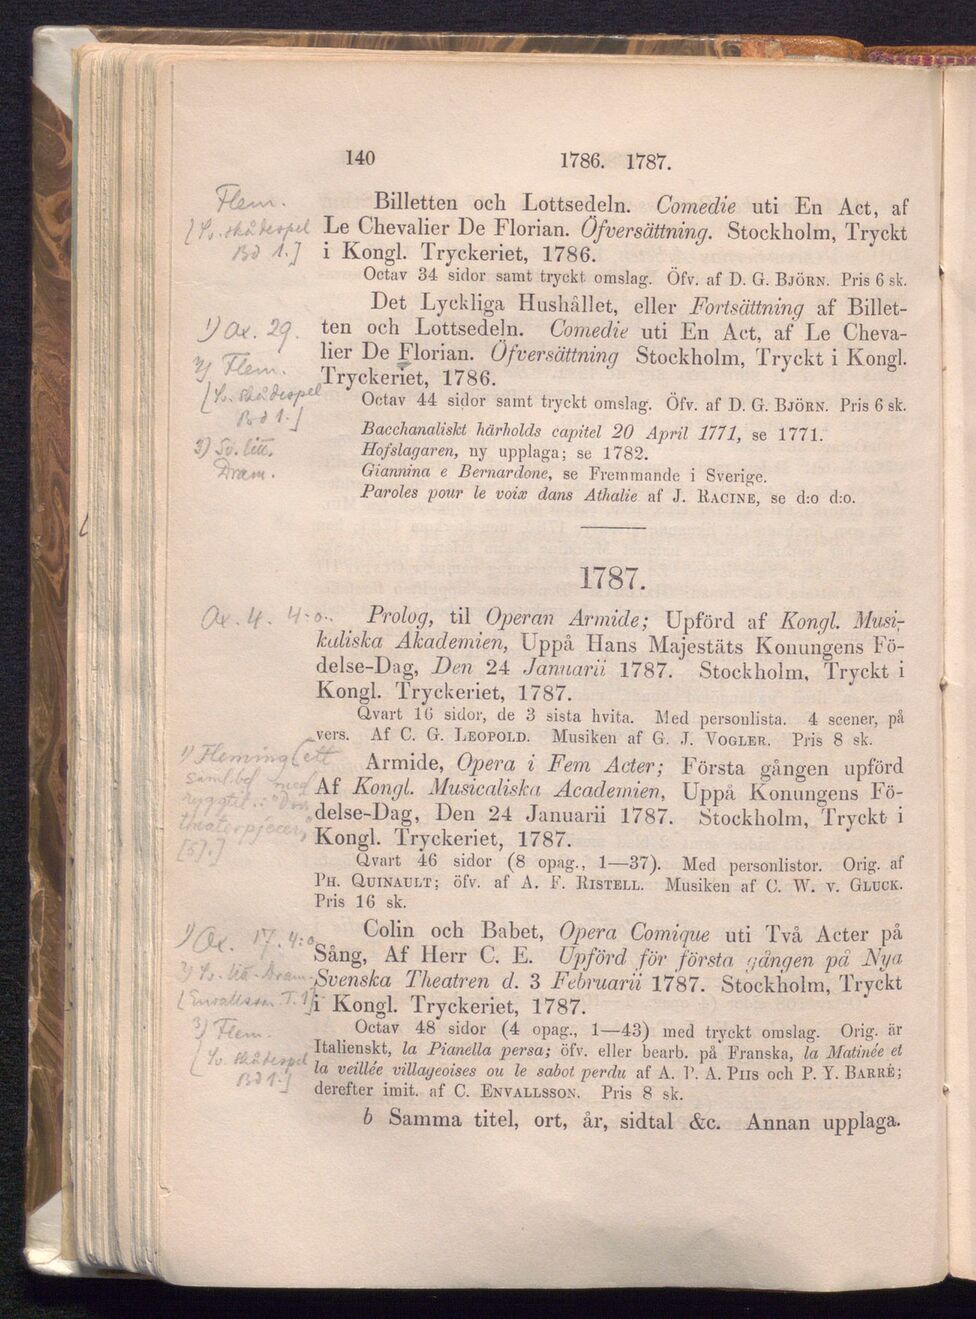 140 1786. 1787.
Flem.
[Sv. skådespel
Bd 1.]
Billetten och Lottsedeln. Comedie uti En Act, af
Le Chevalier De Florian. Öfversättning. Stockholm, Tryckt
i Kongl. Tryckeriet, 1786.
Octav 34 sidor samt tryckt omslag. Öfv. af D. G. Björn. Pris 6 sk.
1) Ax. 29.
2) Flem.
[Sv. skådespel
Bd 1.]
3) Sv. litt.
Dram.
Det Lyckliga Hushållet, eller Fortsättning af Billet-
ten och Lottsedeln. Comedie uti En Act, af Le Cheva-
lier De Florian. Öfversättning Stockholm, Tryckt i Kongl.
Tryckeriet, 1786.
Octav 44 sidor samt tryckt omslag. Öfv. af D. G. Björn. Pris 6 sk.
Bacchanaliskt härholds capitel 20 April 1771, se 1771.
Hofslagaren, ny upplaga; se 1782.
Giannina e Bernardone, se Fremmande i Sverige.
Paroles pour le voix dans Athalie af J. Racine, se d:o d:o.
1787.
Ax. 4. 4:o.
Prolog, til Operan Armide; Upförd af Kongl. Musi-
kaliska Akademien, Uppå Hans Majestäts Konungens Fö-
delse-Dag, Den 24 Januarii 1787. Stockholm, Tryckt i
Kongl. Tryckeriet, 1787.
Qvart 16 sidor, de 3 sista hvita. Med personlista. 4 scener, på
vers. Af C. G. Leopold. Musiken af G. J. Vogler. Pris 8 sk.
1) Fleming (ett
saml.bd med
ryggtit.:
[5].]
Armide, Opera i Fem Acter; Första gången upförd
Af Kongl. Musicaliska Academien, Uppå Konungens Fö-
delse-Dag, Den 24 Januarii 1787. Stockholm, Tryckt i
Kongl. Tryckeriet, 1787.
Qvart 46 sidor (8 opag., 1—37). Med personlistor. Orig. af
Ph. Quinault; öfv. af A. F. Ristell. Musiken af C. W. v. Gluck.
Pris 16 sk.
1) Ax. 17. 4:o
2) Sv. litt. Dram.
[Envallsson T. 1]
3) Flem.
[Sv. skådespel
Bd 1.]
Colin och Babet, Opera Comique uti Två Acter på
Sång, Af Herr C. E. Upförd för första gången på Nya
Svenska Theatren d. 3 Februarii 1787. Stockholm, Tryckt
i Kongl. Tryckeriet, 1787.
Octav 48 sidor (4 opag., 1—43) med tryckt omslag. Orig. är
Italienskt, la Pianella persa; öfv. eller bearb. på Franska, la Matinée et
la veillée villageoises ou le sabot perdu af A. P. A. Piis och P. Y. Barré;
derefter imit. af C. Envallsson. Pris 8 sk.
b Samma titel, ort, år, sidtal &c. Annan upplaga.